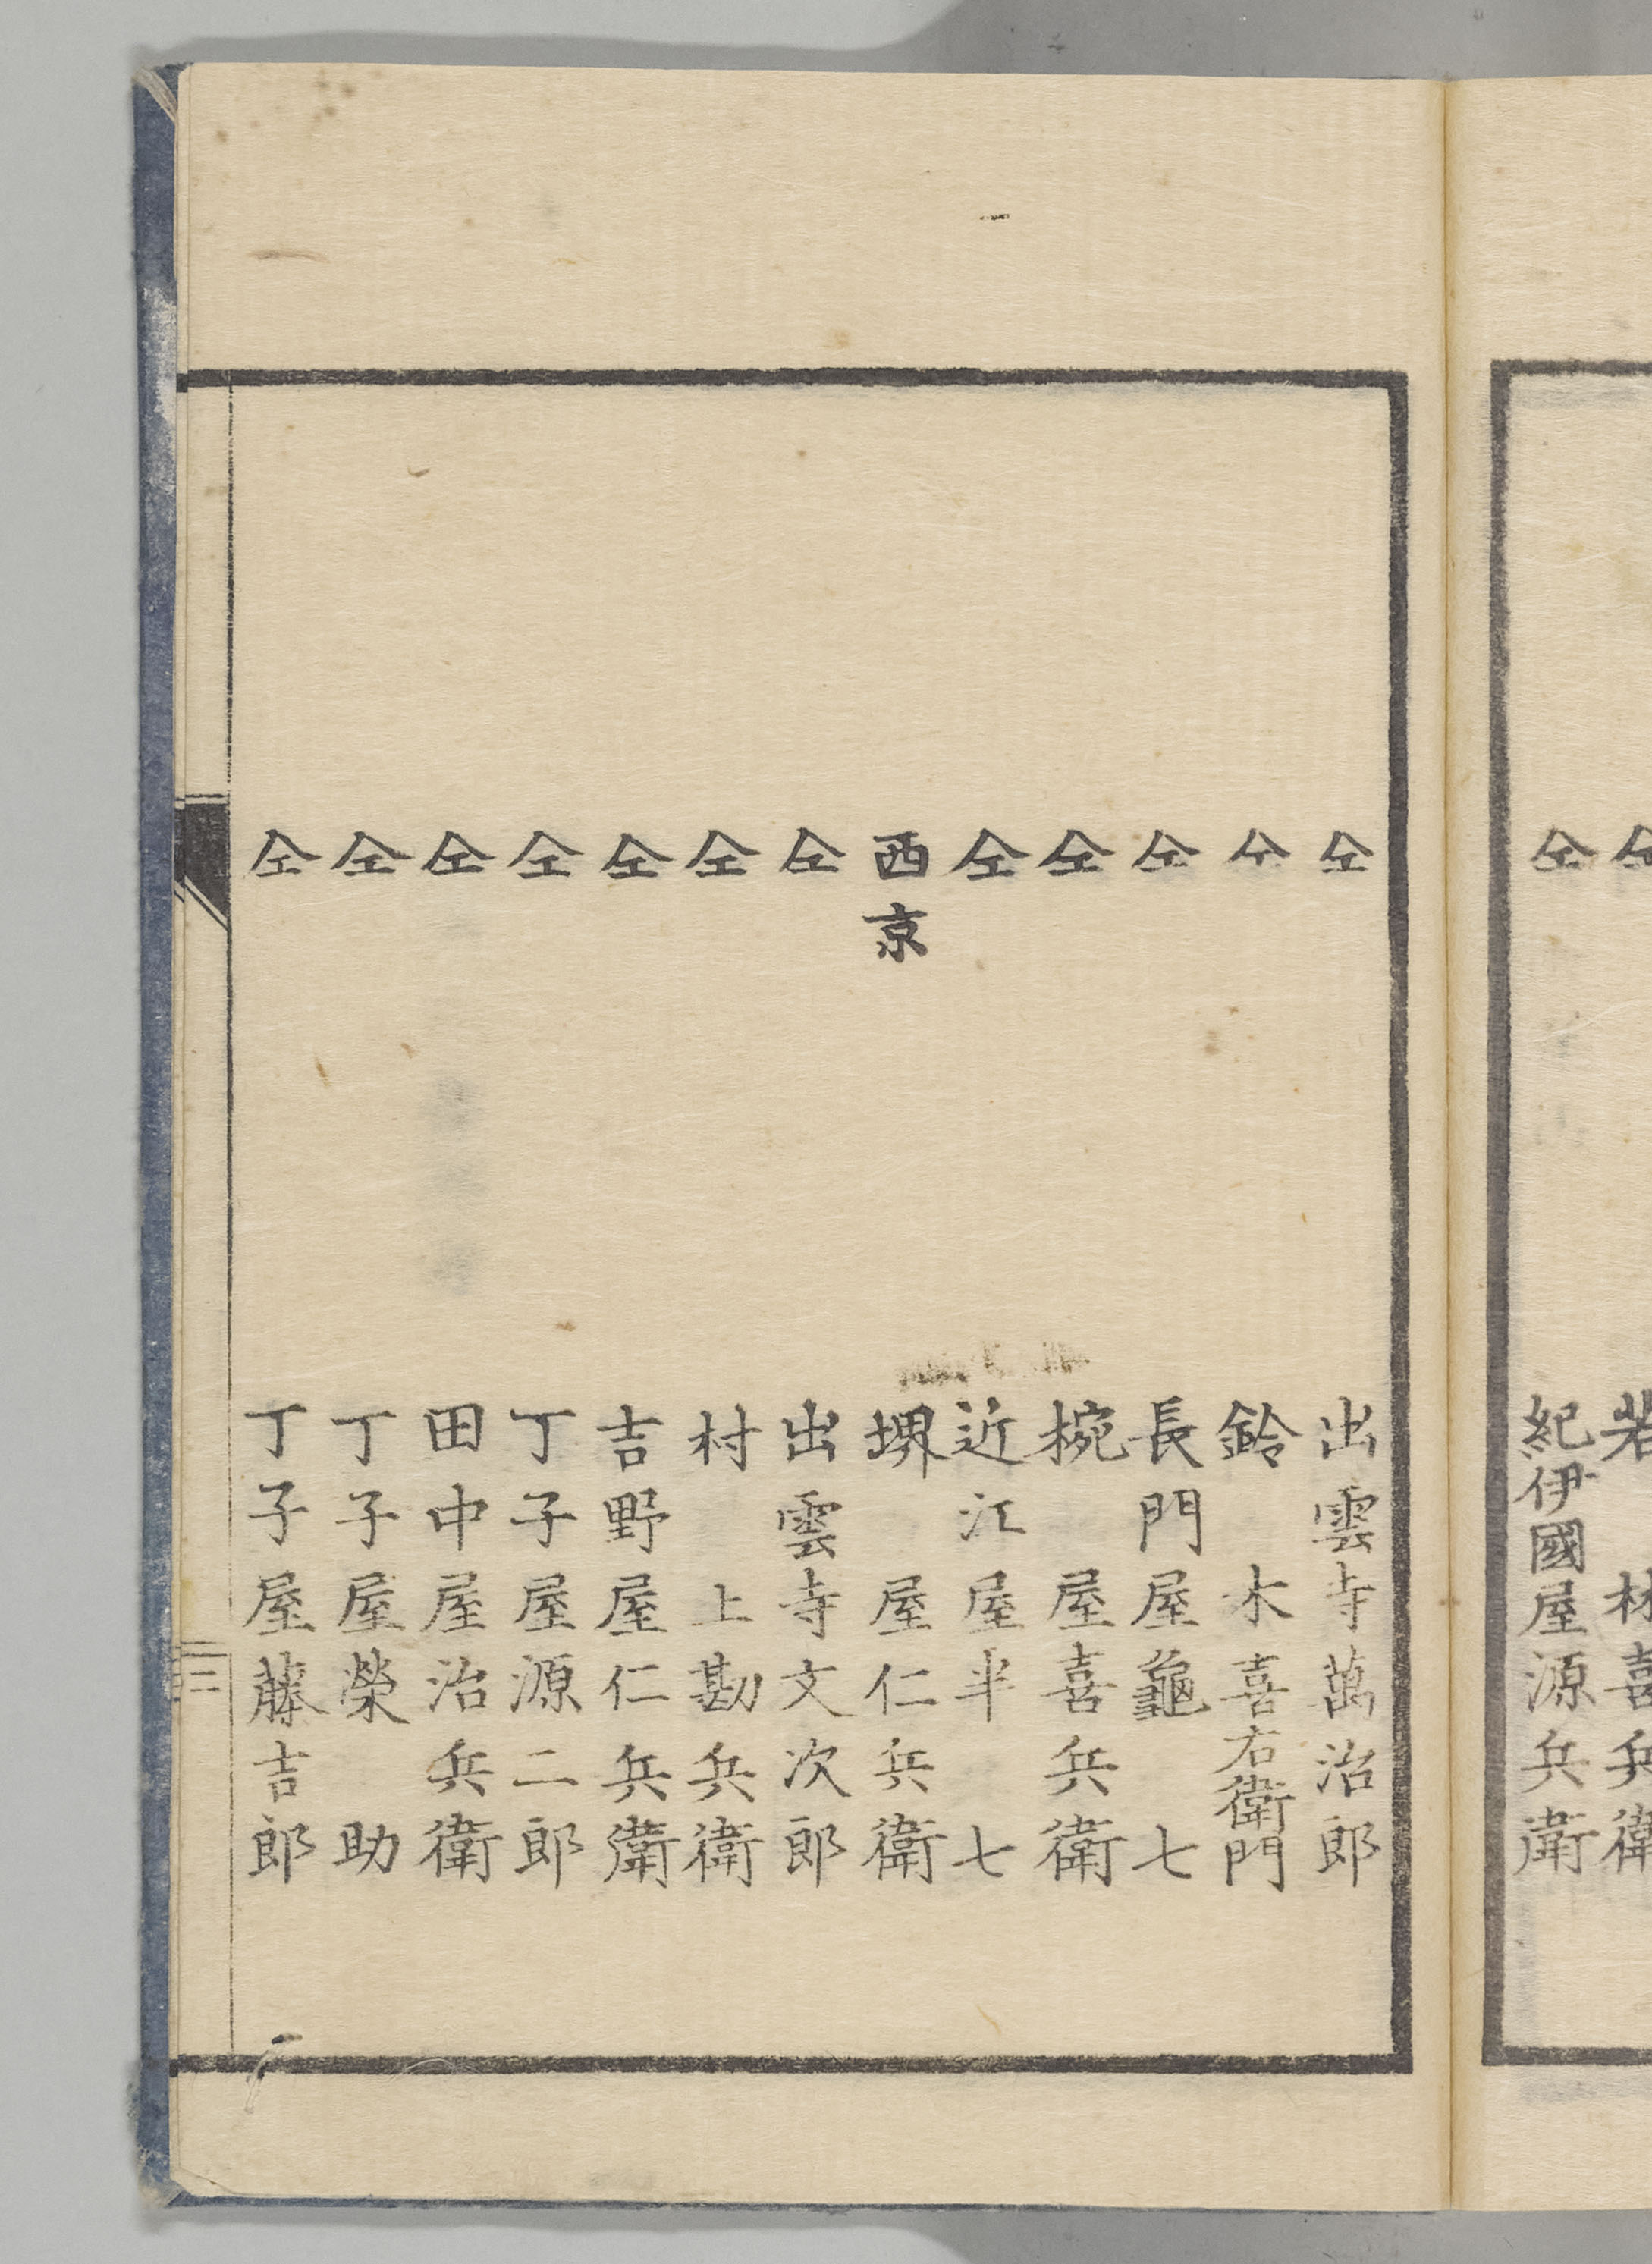 仝 若林喜兵衛
仝 紀伊國屋源兵衛
仝 出雲寺萬治郎
仝 鈴木喜右衛門
仝 長門屋龜七
仝 椀屋喜兵衛
仝 近江屋半七
西京 堺屋仁兵衛
仝 出雲寺文次郎
仝 村上勘兵衛
仝 吉野屋仁兵衛
仝 丁子屋源二郎
仝 田中屋治兵衛
仝 丁子屋榮助
仝 丁子屋藤吉郎